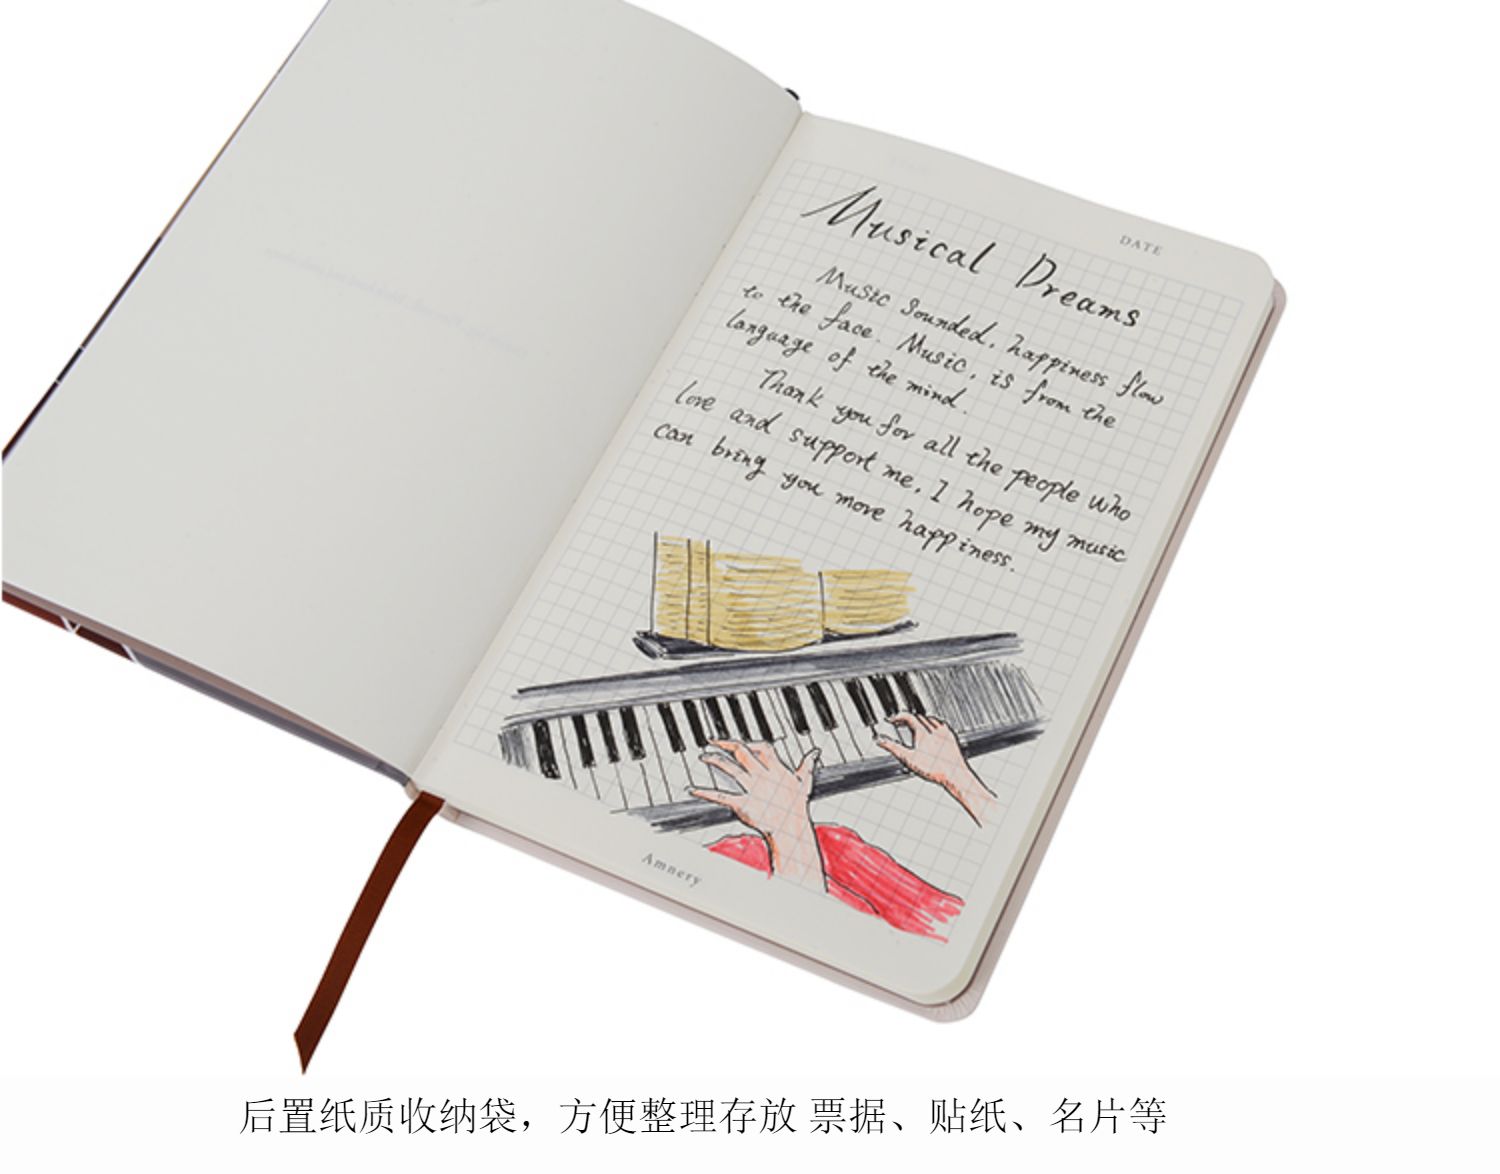 DATE
Musical Dreams
Music sounded, happiness flow
to the face. Music, is from the
language of the mind.
Thank you for all the people who
love and support me, I hope my music
can bring you more happiness.
Amnery
后置纸质收纳袋，方便整理存放 票据、贴纸、名片等